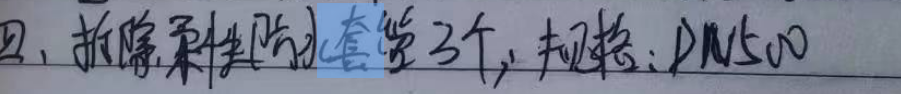 四、拆除柔性防水套管3个,规格:DN500